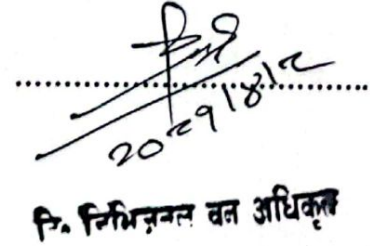 २०८१/४/२
नि. डिभिजनल वन अधिकृत